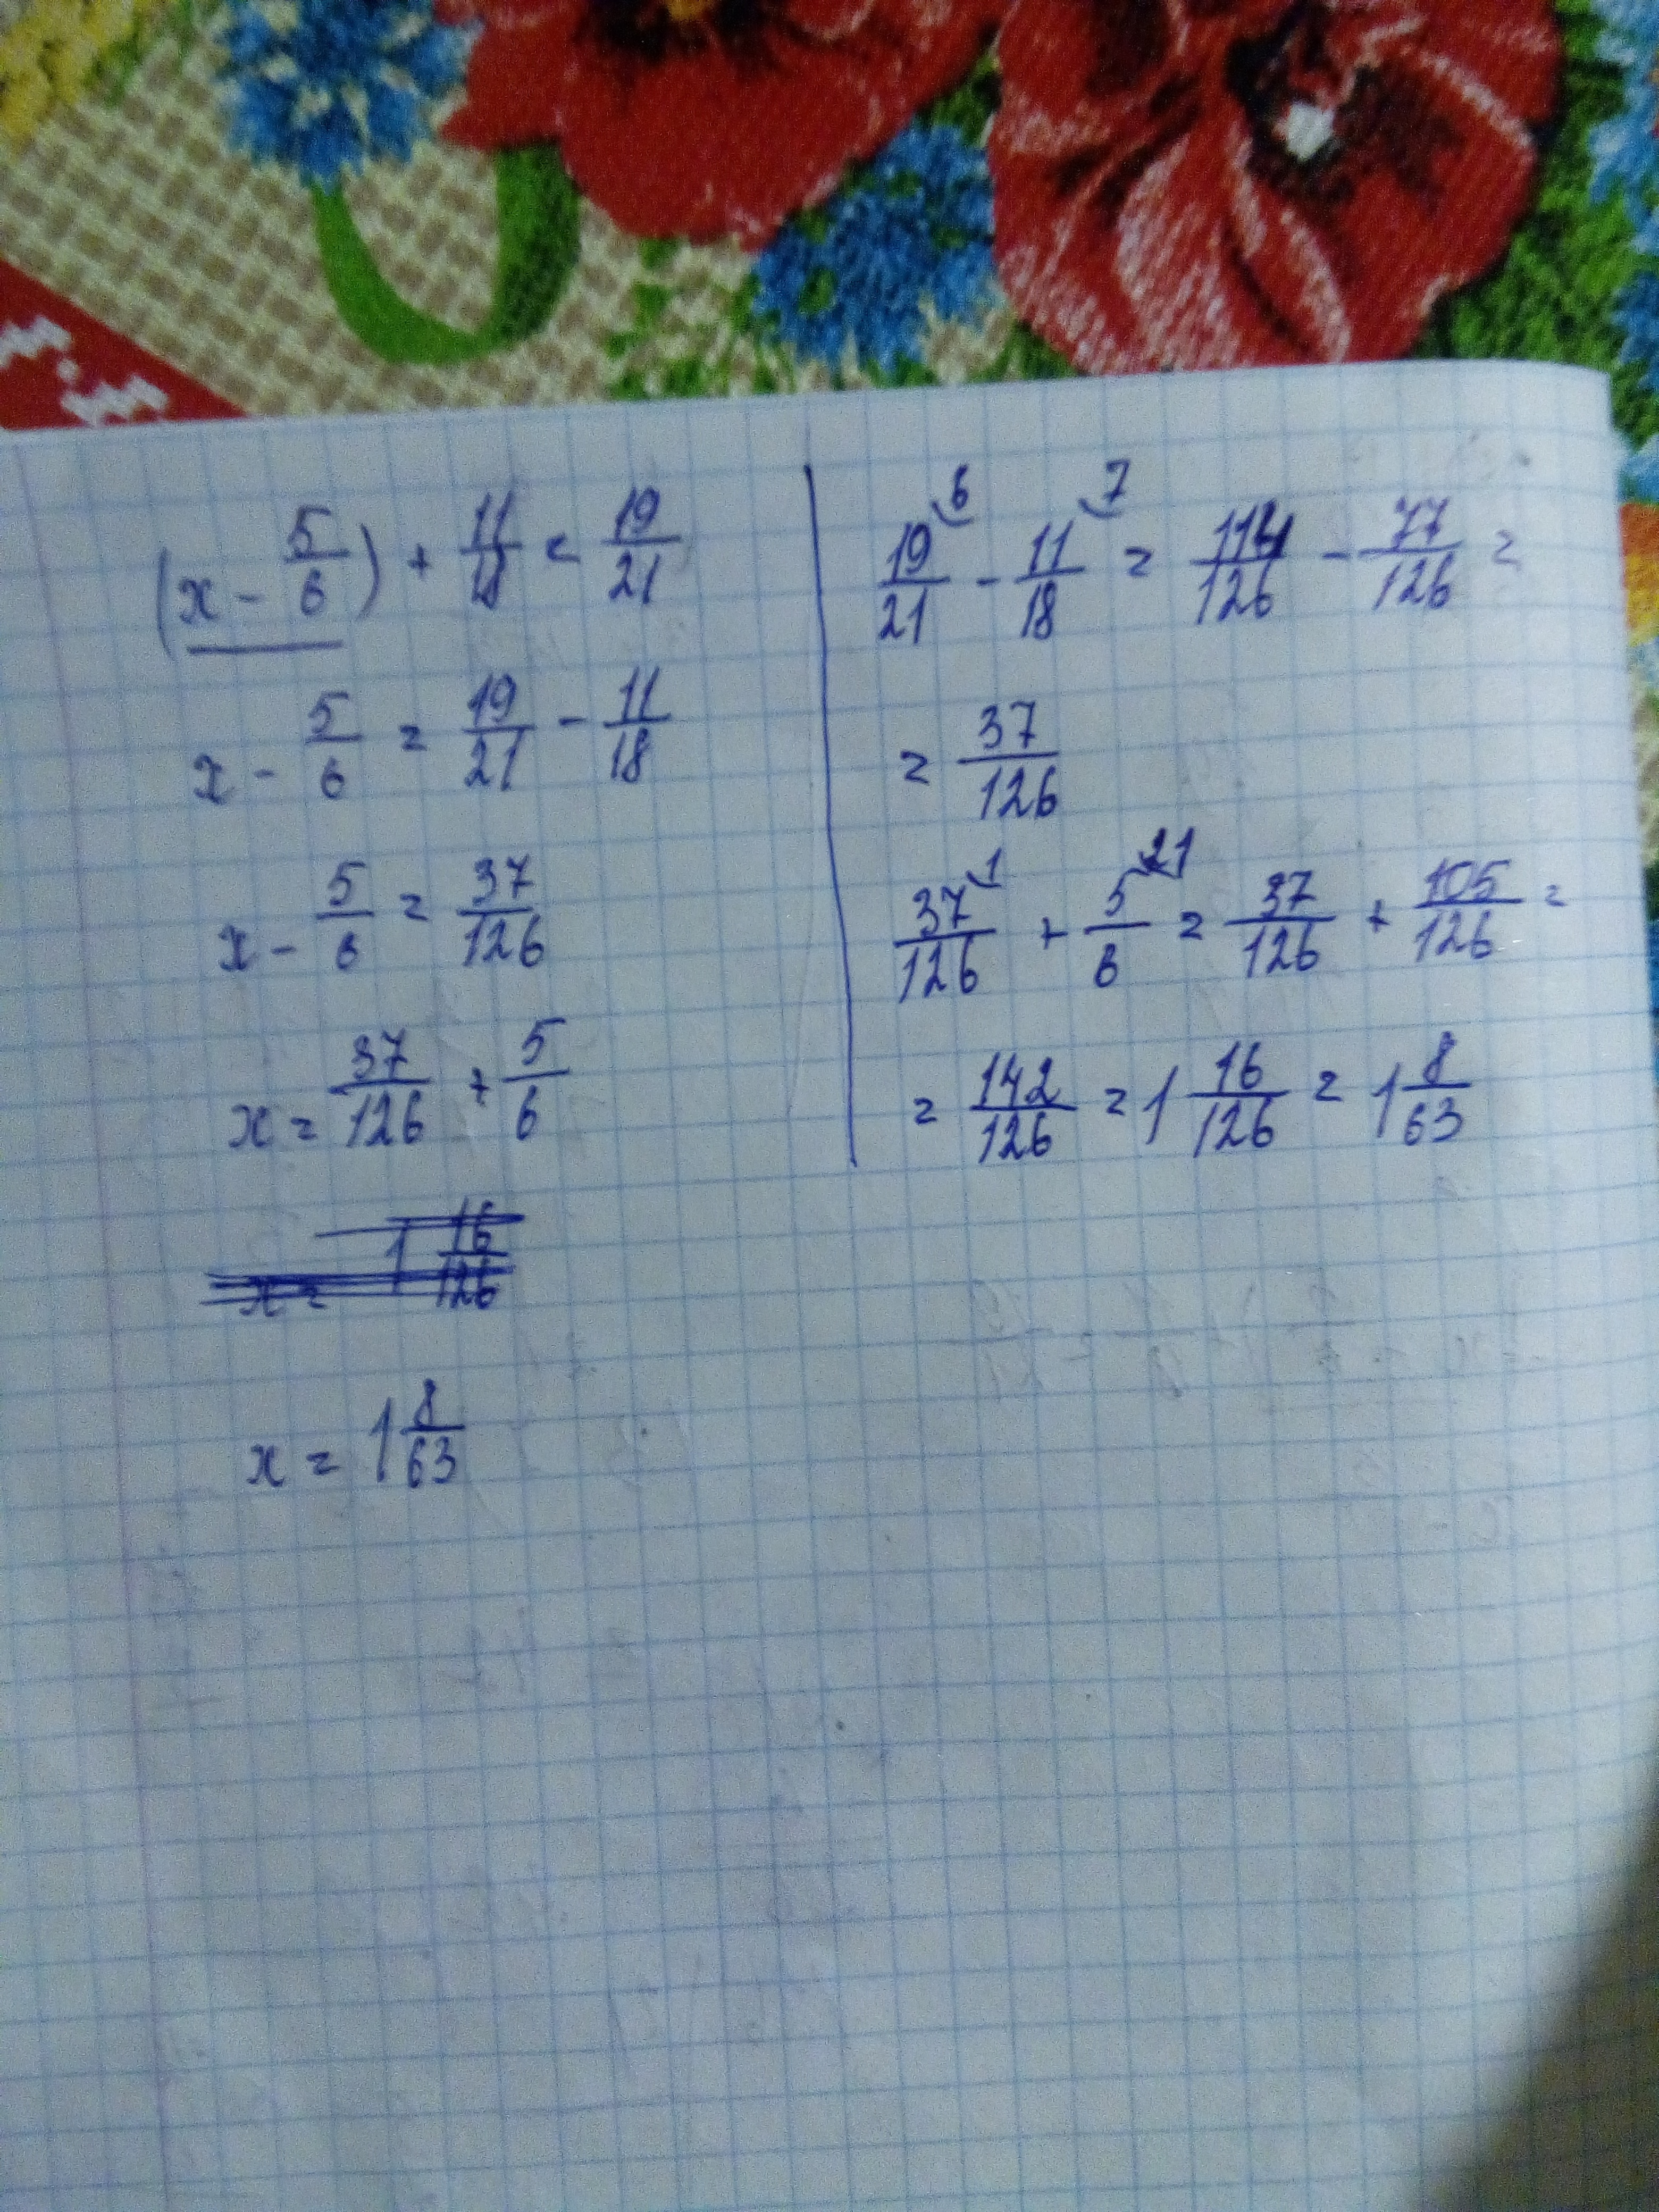 (x - 5/6) + 11/18 = 19/21
x - 5/6 = 19/21 - 11/18
x - 5/6 = 37/126
x = 37/126 + 5/6
x = 1 16/126
x = 1 8/63
19/21 ⁶ - 11/18 ⁷ = 114/126 - 77/126 =
= 37/126
37/126 ¹ + 5/6 ²¹ = 37/126 + 105/126 =
= 142/126 = 1 16/126 = 1 8/63